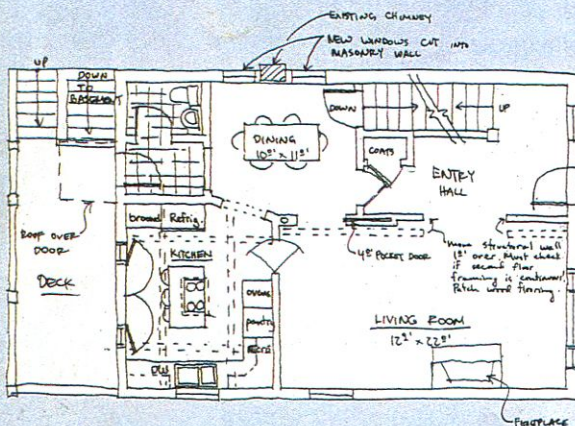 EXISTING CHIMNEY
NEW WINDOWS CUT INTO
MASONRY WALL
UP
DOWN
TO
BASEMENT
DOWN
UP
DINING
10⁰' x 11⁰'
COATS
ENTRY
HALL
ROOF OVER
DOOR
DECK
brooms
Refrig.
KITCHEN
4⁰' POCKET DOOR
move structural wall
1⁰' over. Must check
if second floor
framing is continuous.
Patch wood flooring.
ovens
pantry
micro
LIVING ROOM
12⁰' x 22⁰'
DW
FIREPLACE